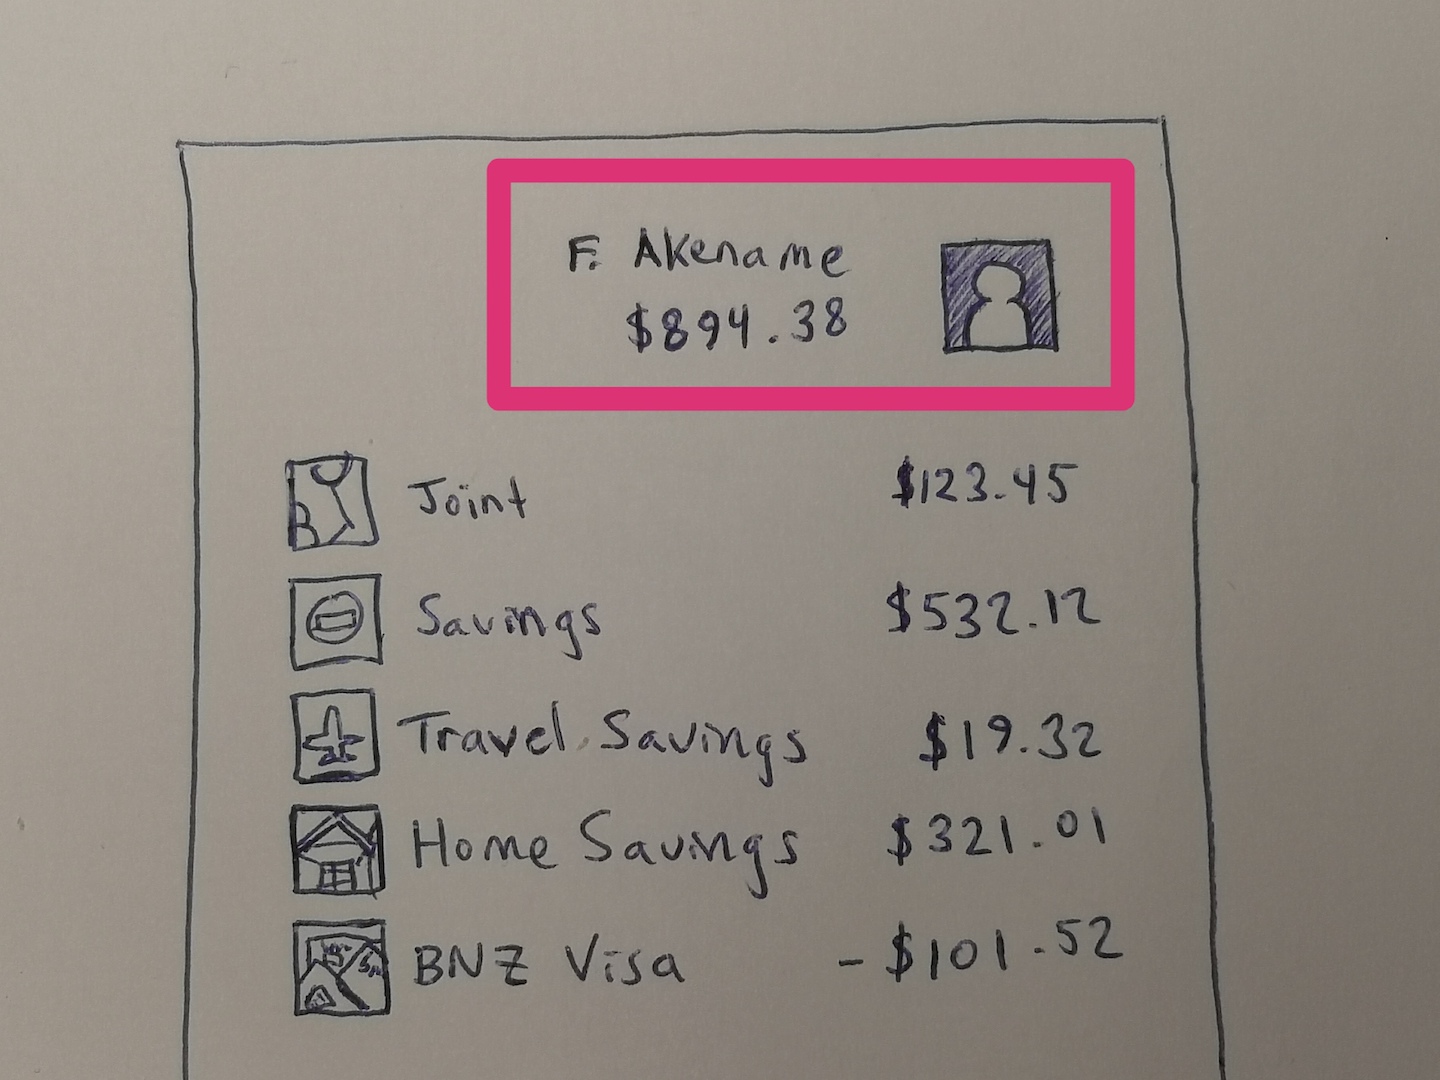 F. Akename
$894.38
Joint $123.45
Savings $532.12
Travel Savings $19.32
Home Savings $321.01
BNZ Visa -$101.52